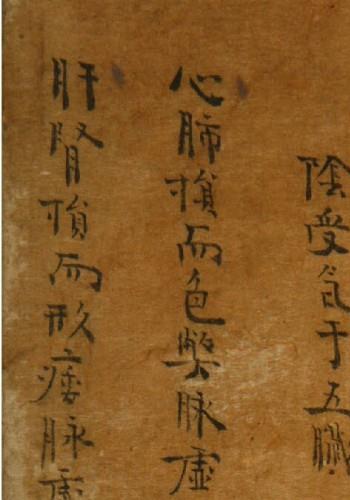 陰受气于五臓
心肺損而色弊脉虚
肝腎損而形痿脉虚